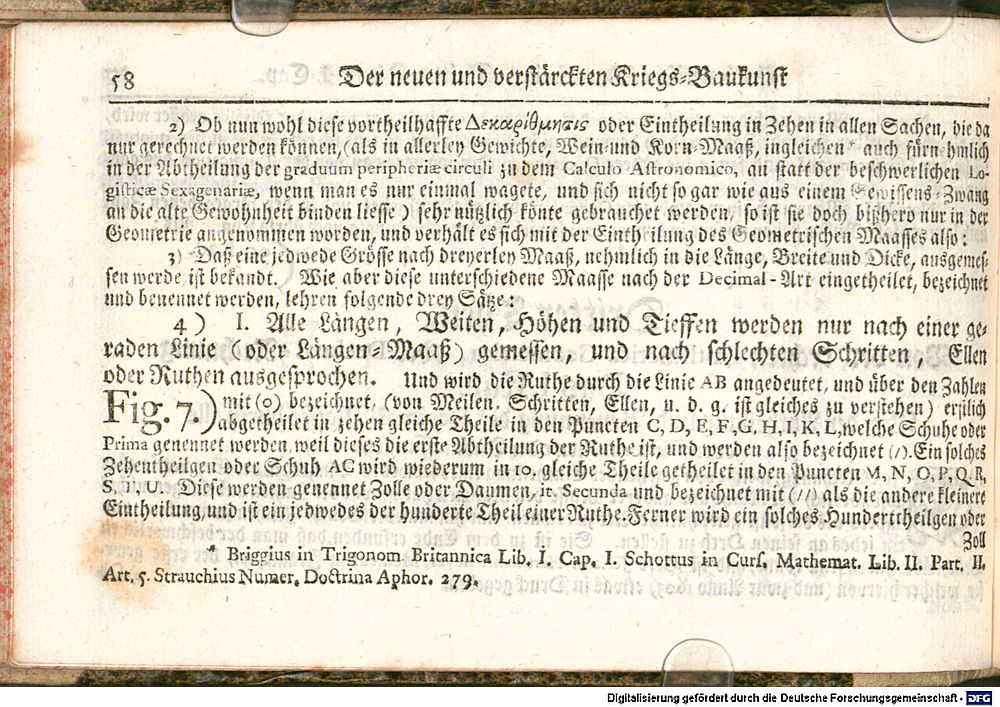 58 Der neuen und verstärckten Kriegs-Baukunst
2) Ob nun wohl diese vortheilhaffte Δεκαρίθμησις oder Eintheilung in Zehen in allen Sachen, die da
nur gerechnet werden können, (als in allerley Gewichte, Wein- und Korn-Maaß, ingleichen * auch fürnehmlich
in der Abtheilung der graduum peripheriæ circuli zu dem Calculo Astronomico, an statt der beschwerlichen Lo-
gisticæ Sexagenariæ, wenn man es nur einmal wagete, und sich nicht so gar wie aus einem Gewissens-Zwang
an die alte Gewohnheit binden liesse) sehr nützlich könte gebrauchet werden, so ist sie doch bißhero nur in der
Geometrie angenommen worden, und verhält es sich mit der Eintheilung des Geometrischen Maasses also:
3) Daß eine jedwede Grösse nach dreyerley Maaß, nehmlich in die Länge, Breite und Dicke, ausgemes-
sen werde, ist bekandt. Wie aber diese unterschiedene Maasse nach der Decimal-Art eingetheilet, bezeichnet
und benennet werden, lehren folgende drey Sätze:
4) I. Alle Längen, Weiten, Höhen und Tieffen werden nur nach einer ge-
raden Linie (oder Längen-Maaß) gemessen, und nach schlechten Schritten, Ellen
oder Ruthen ausgesprochen. Und wird die Ruthe durch die Linie AB angedeutet, und über den Zahlen
Fig. 7.) mit (0) bezeichnet, (von Meilen, Schritten, Ellen, u. d. g. ist gleiches zu verstehen) erstlich
abgetheilet in zehen gleiche Theile in den Puncten C, D, E, F, G, H, I, K, L, welche Schuhe oder
Prima genennet werden, weil dieses die erste Abtheilung der Ruthe ist, und werden also bezeichnet (/). Ein solches
Zehentheilgen oder Schuh AC wird wiederum in 10, gleiche Theile getheilet in den Puncten M, N, O, P, Q, R,
S, T, U. Diese werden genennet Zolle oder Daumen, it. Secunda und bezeichnet mit (//) als die andere kleinere
Eintheilung, und ist ein jedwedes der hunderte Theil einer Ruthe. Ferner wird ein solches Hunderttheilgen oder
Zoll
* Briggius in Trigonom. Britannica Lib. I. Cap. I. Schottus in Curs. Mathemat. Lib. II. Part. II.
Art. 5. Strauchius Numer. Doctrina Aphor. 279.
Digitalisierung gefördert durch die Deutsche Forschungsgemeinschaft - DFG